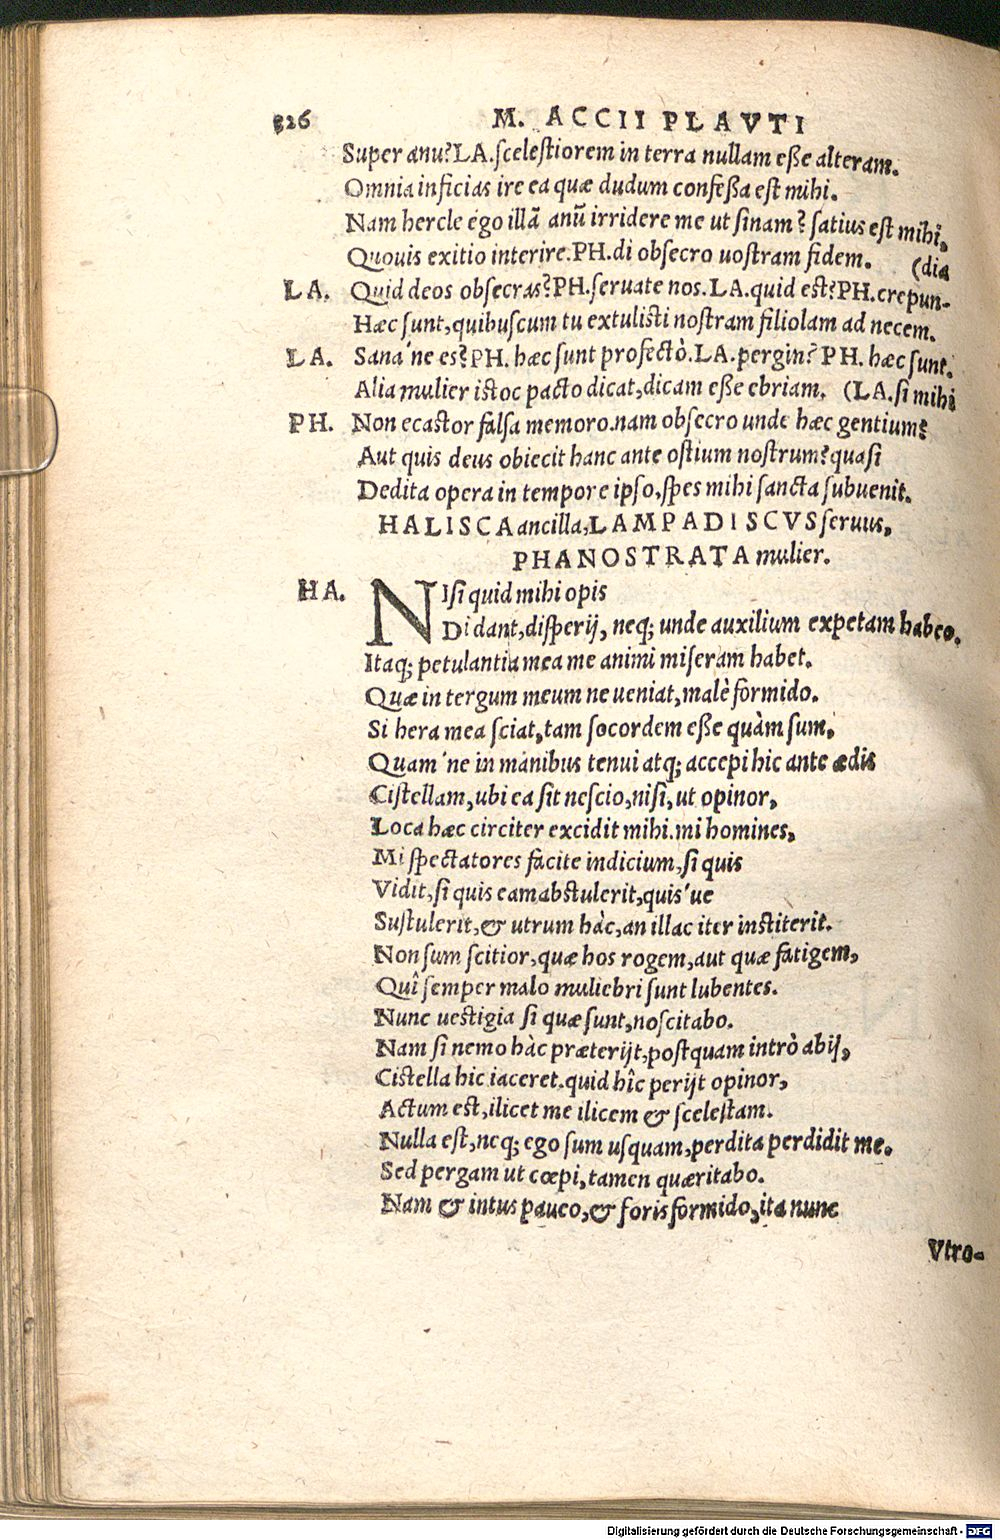 326 M. ACCII PLAVTI
Super anu? LA. scelestiorem in terra nullam esse alteram.
Omnia inficias ire ea quæ dudum confessa est mihi.
Nam hercle ego illã anũ irridere me ut sinam? satius est mihi,
Quouis exitio interire. PH. di obsecro uostram fidem. (dia
LA. Quid deos obsecras? PH. seruate nos. LA. quid est? PH. crepun-
Hæc sunt, quibuscum tu extulisti nostram filiolam ad necem.
LA. Sana'ne es? PH. hæc sunt profectò. LA. pergin? PH. hæc sunt.
Alia mulier istoc pacto dicat, dicam esse ebriam. (LA. si mihi
PH. Non ecastor falsa memoro. nam obsecro unde hæc gentium?
Aut quis deus obiecit hanc ante ostium nostrum? quasi
Dedita opera in tempore ipso, spes mihi sancta subuenit.
HALISCA ancilla, LAMPADISCVS seruus,
PHANOSTRATA mulier.
HA. NIsi quid mihi opis
Di dant, disperij, neq; unde auxilium expetam habeo.
Itaq; petulantia mea me animi miseram habet.
Quæ in tergum meum ne ueniat, malè formido.
Si hera mea sciat, tam socordem esse quàm sum,
Quam'ne in manibus tenui atq; accepi hic ante ædis
Cistellam, ubi ea sit nescio, nisi, ut opinor,
Loca hæc circiter excidit mihi. mi homines,
Mi spectatores facite indicium, si quis
Vidit, si quis eam abstulerit, quis'ue
Sustulerit, & utrum hàc, an illac iter institerit.
Non sum scitior, quæ hos rogem, aut quæ fatigem,
Quî semper malo muliebri sunt lubentes.
Nunc uestigia si quæ sunt, noscitabo.
Nam si nemo hàc præterijt, postquam intrò abij,
Cistella hic iaceret. quid hîc perijt opinor,
Actum est, ilicet me ilicem & scelestam.
Nulla est, neq; ego sum usquam, perdita perdidit me.
Sed pergam ut cœpi, tamen quæritabo.
Nam & intus paueo, & foris formido, ita nunc
Vtro-
Digitalisierung gefördert durch die Deutsche Forschungsgemeinschaft - DFG